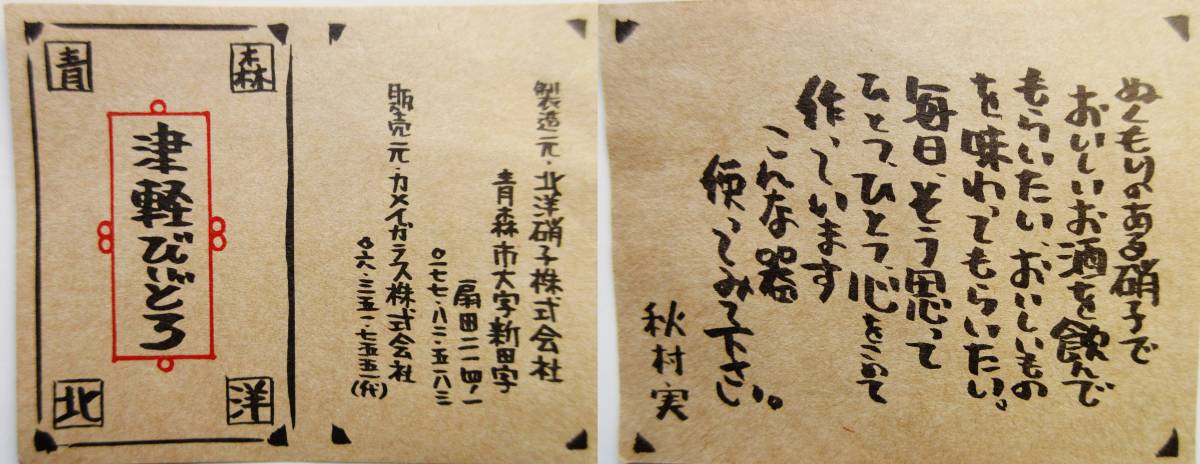 青 森
津軽びいどろ
北 洋
製造元・北洋硝子株式会社
青森市大字新田字
扇田二一四ノ一
〇一七七・八二・五一八三
販売元・カメイガラス株式会社
〇六・三五一・七五五一(代)
ぬくもりのある硝子で
おいしいお酒を飲んで
もらいたい、おいしいもの
を味わってもらいたい。
毎日、そう思って
ひとつ、ひとつ、心をこめて
作っています
こんな器
使ってみて下さい。
秋村実